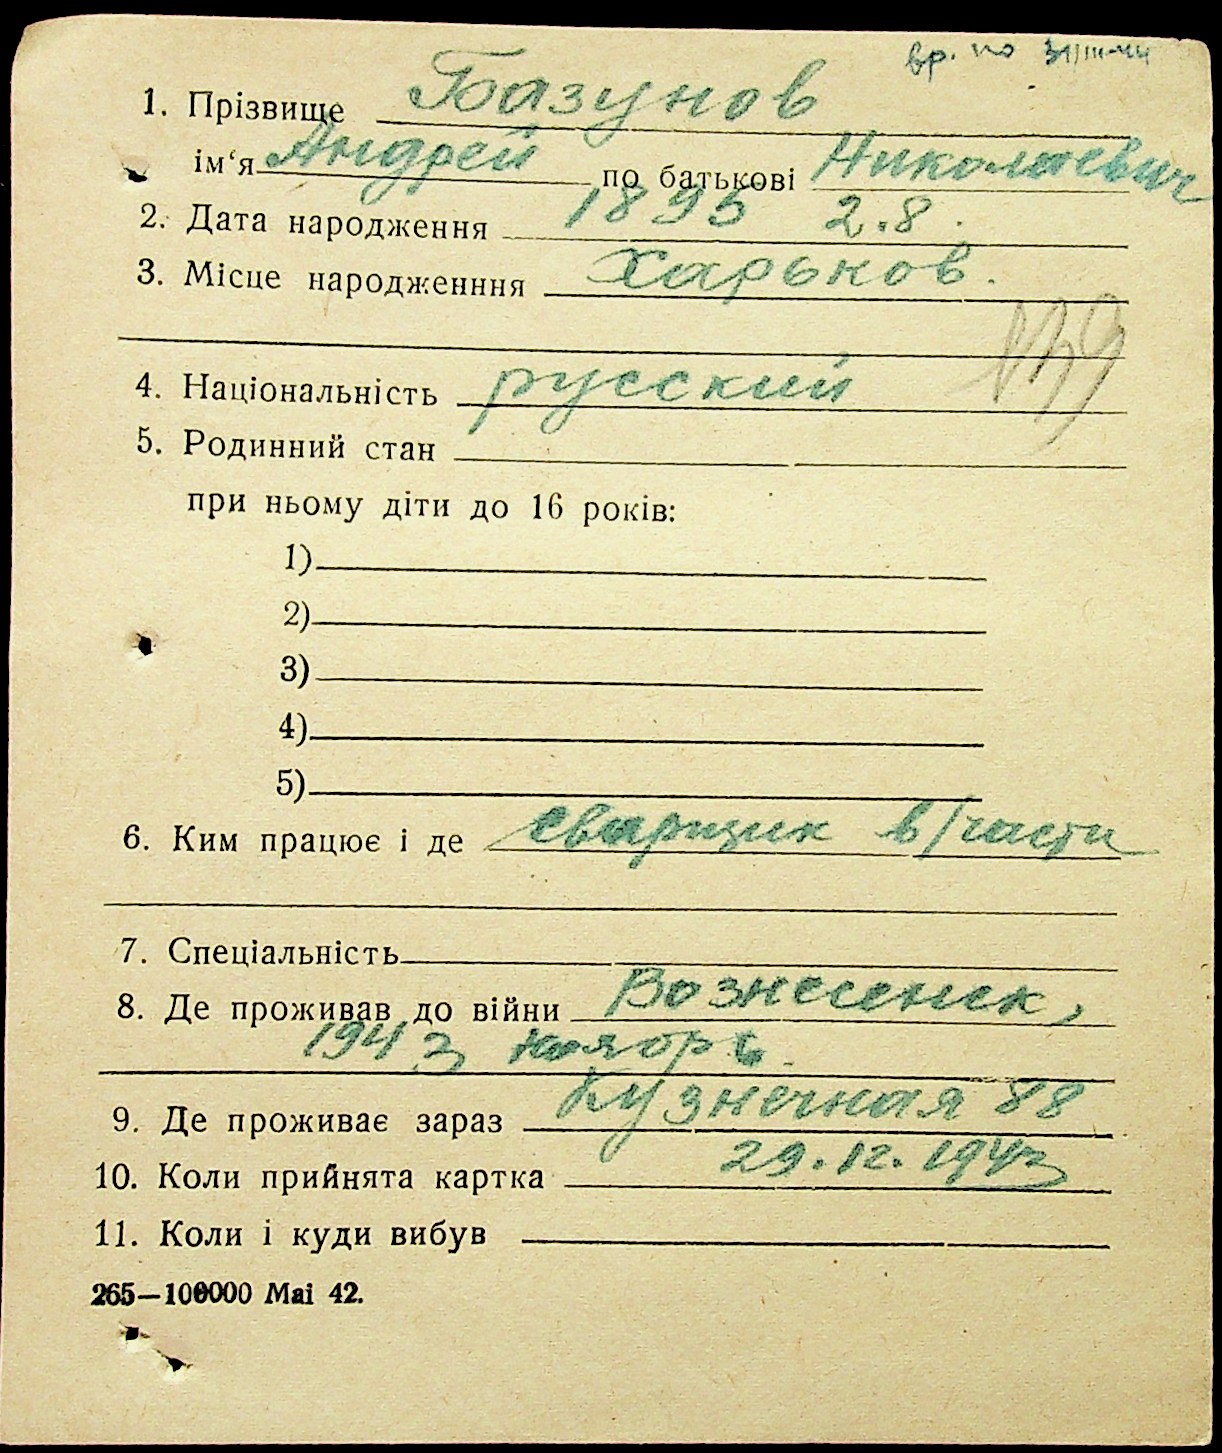 вр. по 31/III-44
1. Прізвище Базунов
ім‘я Андрей по батькові Николаевич
2. Дата народження 1895 2.8.
3. Місце народженння Харьков.
139
4. Національність русский
5. Родинний стан
при ньому діти до 16 років:
1)
2)
3)
4)
5)
6. Ким працює і де сварщик в/части
7. Спеціальність
8. Де проживав до війни Вознесенск,
1943 ноябрь
9. Де проживає зараз Кузнечная 88
10. Коли прийнята картка 29.12.1943
11. Коли і куди вибув
265—100000 Mai 42.